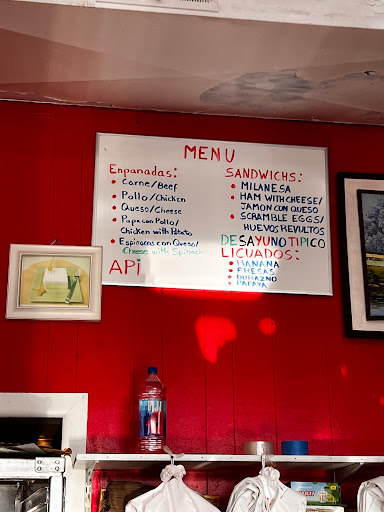 MENU
Enpanadas:
Carne/Beef
Pollo/Chicken
Queso/Cheese
Papa con Pollo/
Chicken with Potato
Espinacas con Queso/
Cheese with Spinach
API
SANDWICHS:
MILANESA
HAM WITH CHEESE/
JAMON CON QUESO
SCRAMBLE EGGS/
HUEVOS REVULTOS
DESAYUNO TIPICO
LICUADOS:
BANANA
FRESAS
DURAZNO
PAPAYA